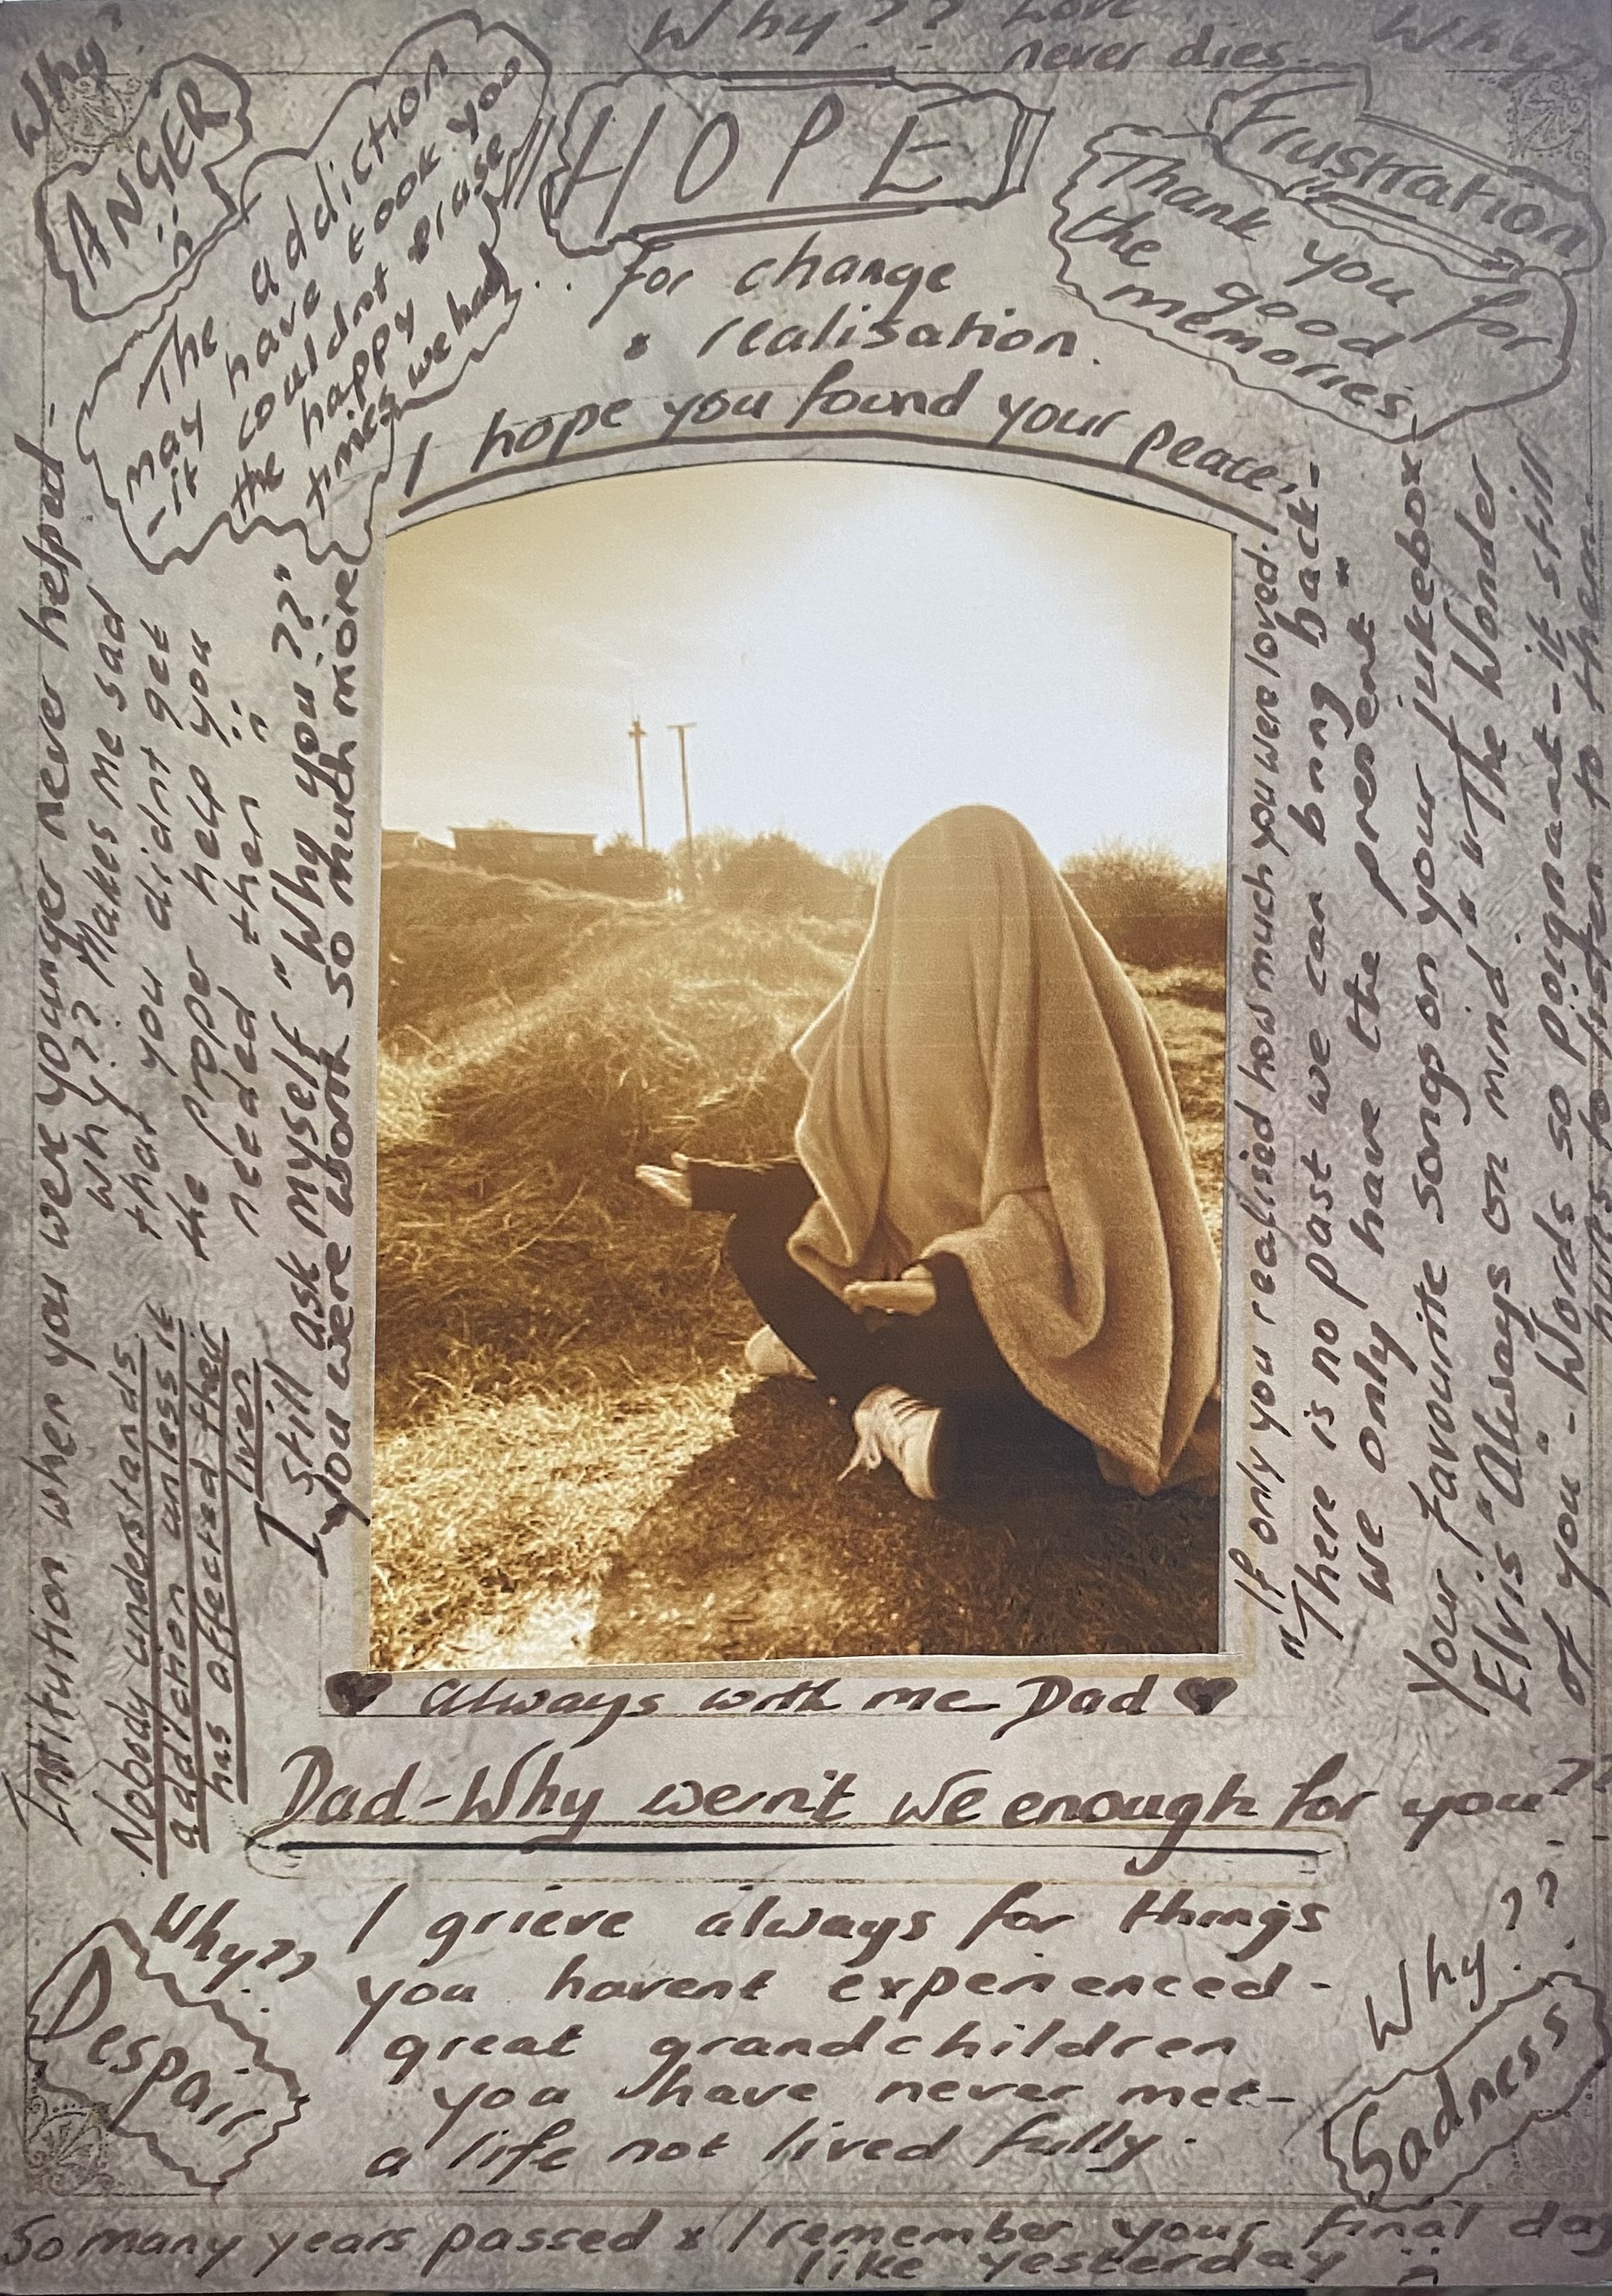 Why?
Why?? Love
never dies...
Why?
ANGER
The addiction
may have took you
- it couldnt erase
the happy
times we had...
HOPE
for change
& realisation.
Frustration
Thank you for
the good
memories
I hope you found your peace,
Institution when you were younger never helped -
why?? Makes me sad
that you didnt get
the proper help you
needed then
Nobody understands
addiction unless it
has affected their
lives
I still ask myself "Why you??"
you were worth so much more
If only you realised how much you were loved.
"There is no past we can bring back -
we only have the present"
Your favourite songs on your jukebox
Elvis "Always on mind" "The Wonder
of you" - Words so poignant - it still
hurts to listen to them
Always with me Dad
Dad - Why wern't we enough for you??
Why??
Despair
I grieve always for things
you havent experienced -
great grandchildren
you have never met -
a life not lived fully.
Why??
Sadness
So many years passed & I remember your final day
like yesterday